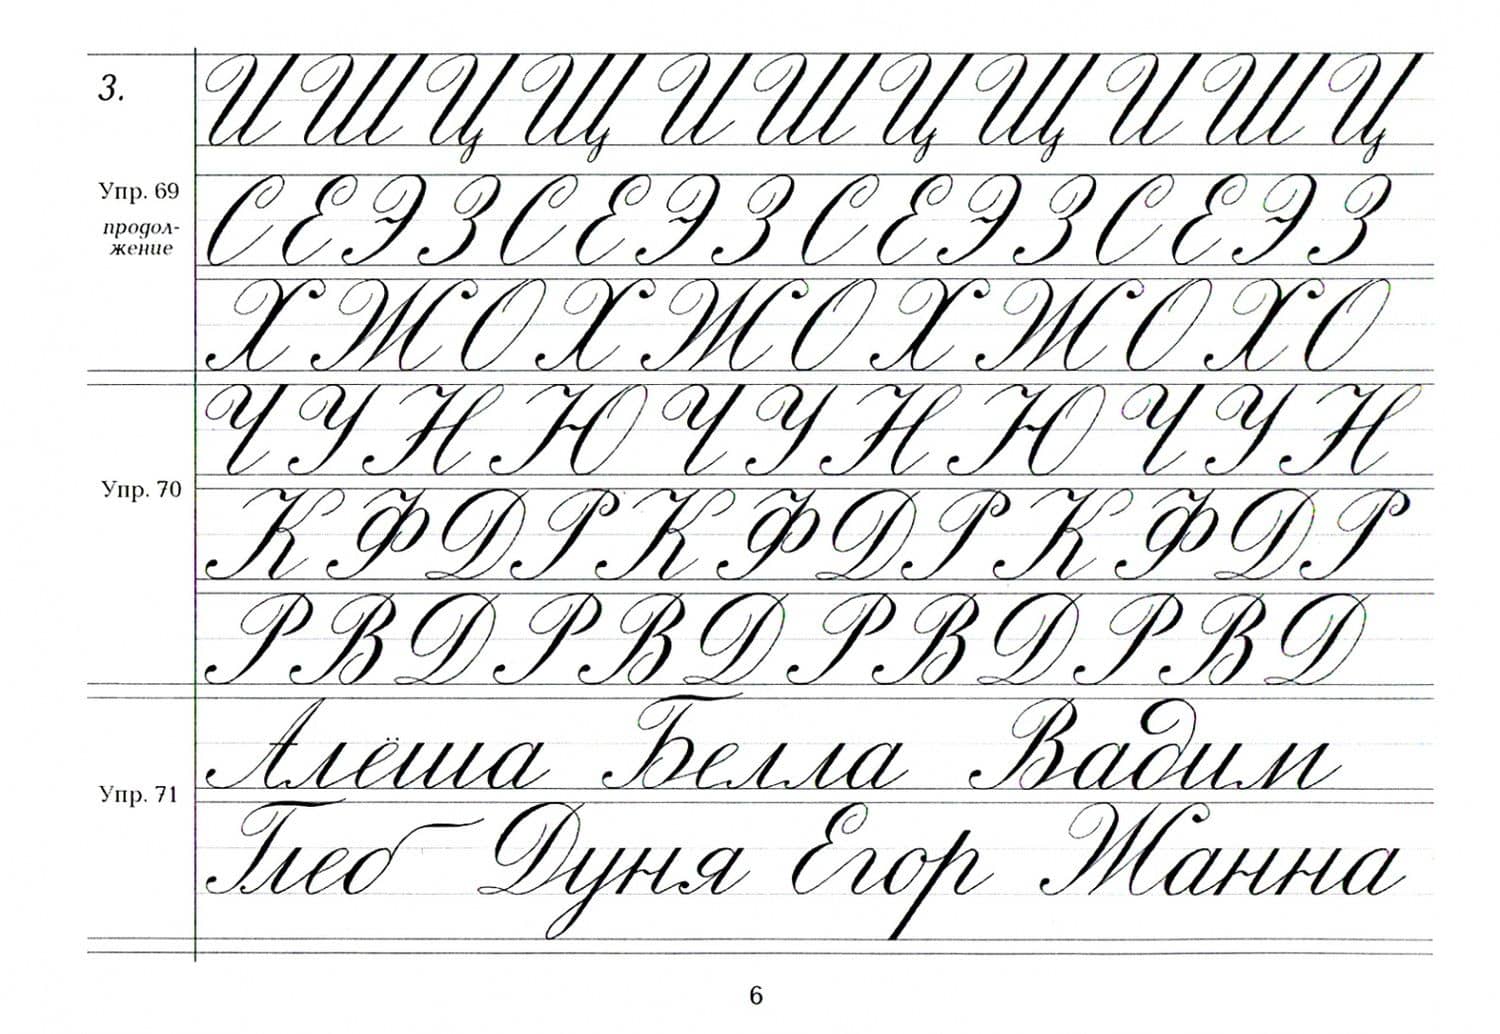 3.
И Ш Ц Щ И Ш Ц Щ И Ш Ц
Упр. 69
продол-
жение
С Е Э З С Е Э З С Е Э З С Е Э З
Х Ж О Х Ж О Х Ж О Х О
Упр. 70
Ч У Н Ю Ч У Н Ю Ч У Н
К Ф Д Р К Ф Д Р К Ф Д Р
Р В Д Р В Д Р В Д Р В Д
Упр. 71
Алёша Белла Вадим
Глеб Дуня Егор Жанна
6